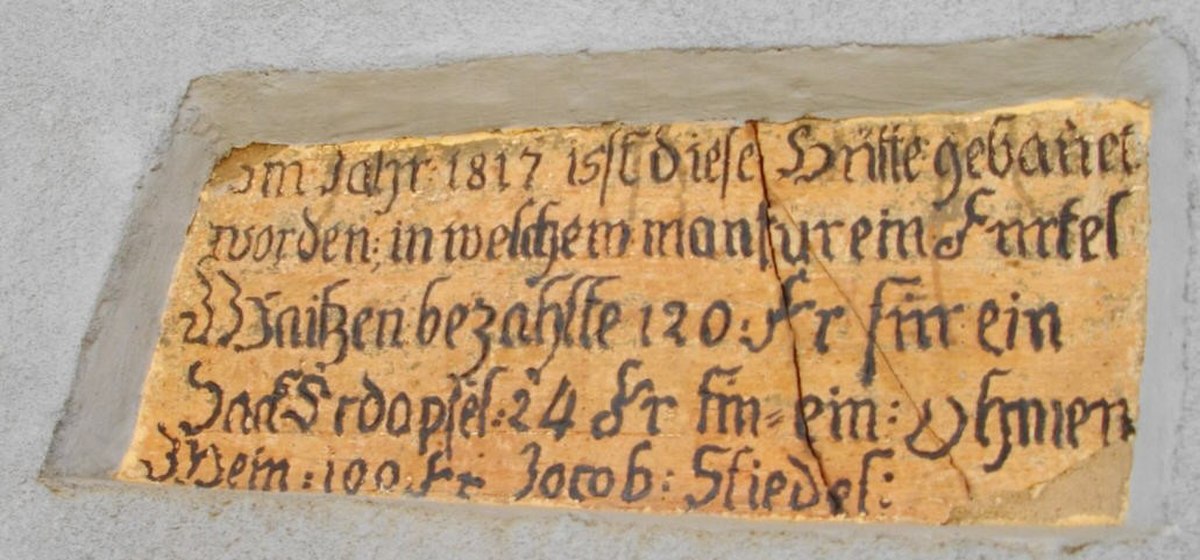 Im Jahr: 1817 isst diese Hütte gebauet
worden: in welchem man fur ein Firtel
Waitzen bezahlte 120: Fr für ein
Sack Erdapfel: 24 Fr für ein: Ohmen
Wein: 100 Fr Jacob: Stiedel: